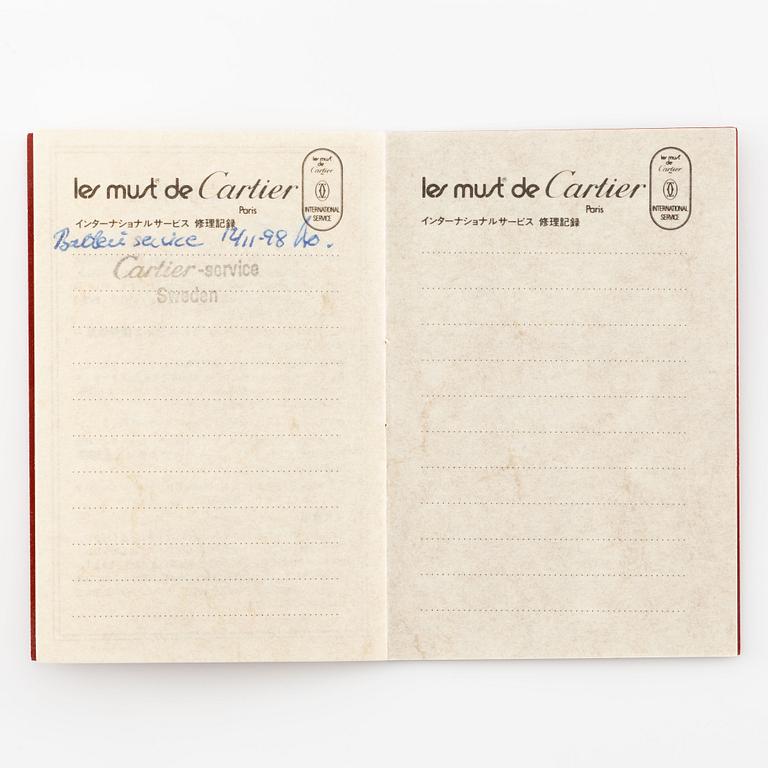 les must de Cartier
Paris
les must de Cartier
INTERNATIONAL SERVICE
インターナショナルサービス 修理記録
Batteri service 12/11-98
Cartier-service
Sweden
les must de Cartier
Paris
les must de Cartier
INTERNATIONAL SERVICE
インターナショナルサービス 修理記録